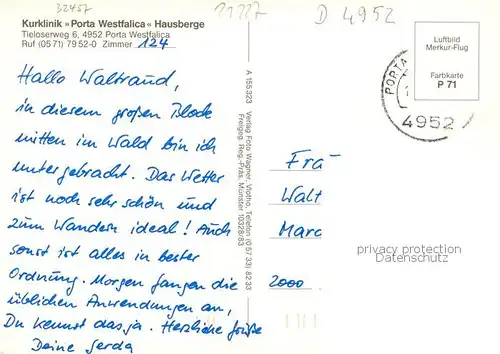 32457
11227
D 4952
Kurklinik »Porta Westfalica« Hausberge
Tieloserweg 6, 4952 Porta Westfalica
Ruf (05 71) 79 52-0 Zimmer 124
Luftbild
Merkur-Flug
Farbkarte
P 71
PORTA
4952
Hallo Waltraud,
in diesem großen Block
mitten im Wald bin ich
untergebracht. Das Wetter
ist noch sehr schön und
zum Wandern ideal! Auch
sonst ist alles in bester
Ordnung. Morgen fangen die
üblichen Anwendungen an,
Du kennst das ja. Herzliche Grüße
Deine Gerda
A 155 323 Verlag Foto Wagner, Vlotho, Telefon (0 57 33) 82 33
Freigeg. Reg.-Präs. Münster 10328/83
Fra
Walt
Marc
2000
privacy protection
Datenschutz